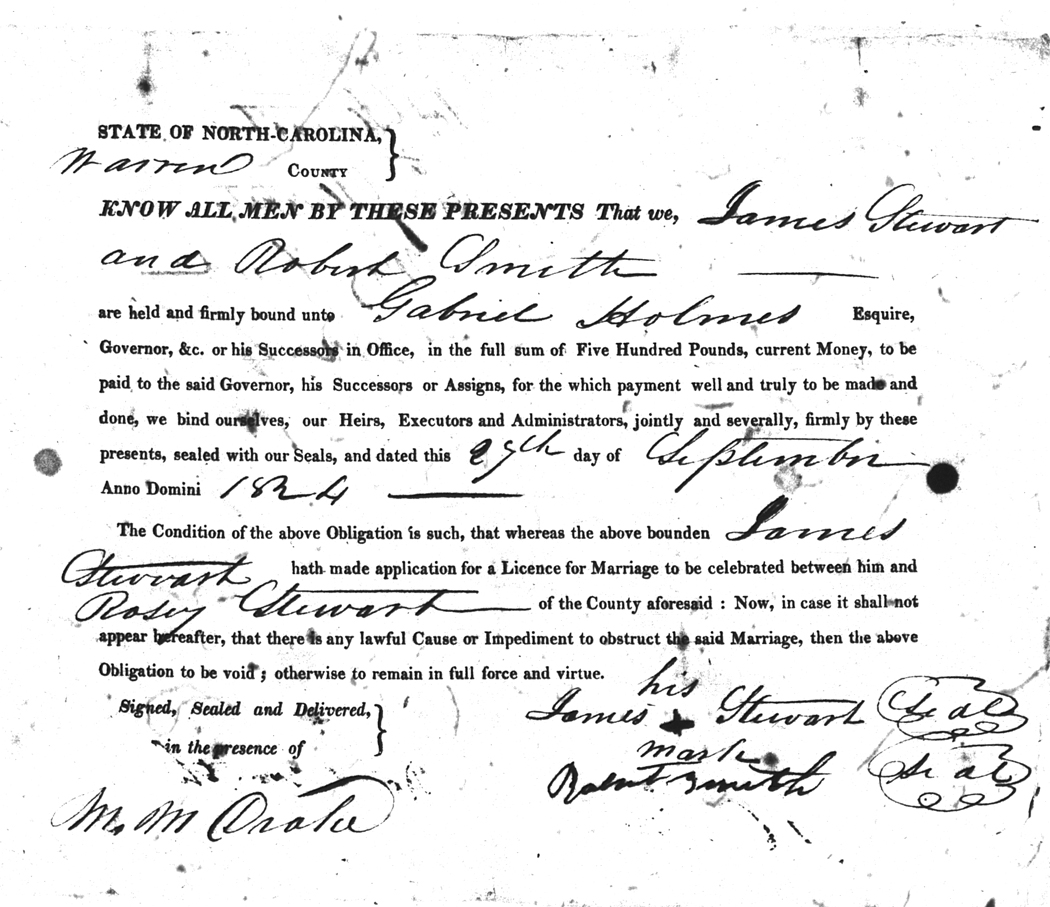 STATE OF NORTH-CAROLINA,
Warren COUNTY
KNOW ALL MEN BY THESE PRESENTS That we, James Stewart
and Robert Smith
are held and firmly bound unto Gabriel Holmes Esquire,
Governor, &c. or his Successors in Office, in the full sum of Five Hundred Pounds, current Money, to be
paid to the said Governor, his Successors or Assigns, for the which payment well and truly to be made and
done, we bind ourselves, our Heirs, Executors and Administrators, jointly and severally, firmly by these
presents, sealed with our Seals, and dated this 29th day of September
Anno Domini 1824
The Condition of the above Obligation is such, that whereas the above bounden James
Stewart hath made application for a Licence for Marriage to be celebrated between him and
Rosey Stewart of the County aforesaid : Now, in case it shall not
appear hereafter, that there is any lawful Cause or Impediment to obstruct the said Marriage, then the above
Obligation to be void ; otherwise to remain in full force and virtue.
Signed, Sealed and Delivered,
in the presence of
his
James + Stewart Seal
mark
Robert Smith Seal
M. M Drake